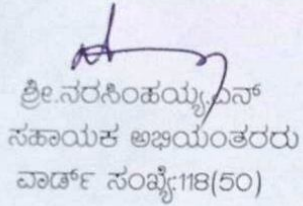 ಶ್ರೀ.ನರಸಿಂಹಯ್ಯ.ಎನ್
ಸಹಾಯಕ ಅಭಿಯಂತರರು
ವಾರ್ಡ್ ಸಂಖ್ಯೆ:118(50)